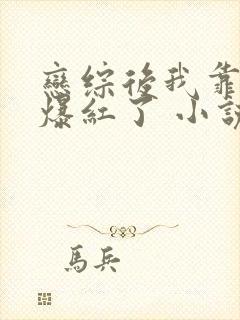 戀綜後我靠
爆紅了 小說
馬兵